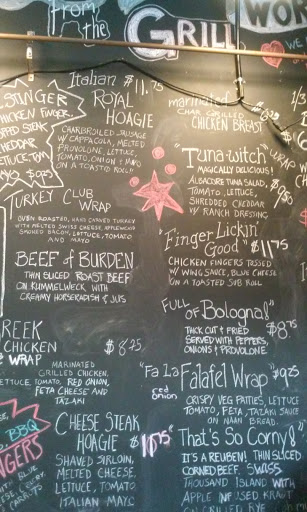 from
the
GRILL
WO
WE
Italian $11.75
ROYAL
HOAGIE
CHARBROILED SAUSAGE
W/ CAPPACOLA, MELTED
PROVOLONE, LETTUCE,
TOMATO, ONION & MAYO
ON A TOASTED ROLL!!
CHICKEN FINGER,
STEAK
CHEDDAR
LETTUCE, TOM
TURKEY CLUB
WRAP
OVEN ROASTED, HAND CARVED TURKEY
WITH MELTED SWISS CHEESE, APPLEWHIP
SMOKED BACON, LETTUCE, TOMATO
AND MAYO
BEEF of BURDEN
THIN SLICED ROAST BEEF
ON KUMMELWECK WITH
CREAMY HORSERADISH & JUS
REEK
CHICKEN $8.75
WRAP
MARINATED
GRILLED CHICKEN,
LETTUCE, TOMATO, RED ONION,
FETA CHEESE AND
TAZAKI
BBQ
NGERS
CHEESE STEAK
HOAGIE $10.75
SHAVED SIRLOIN,
MELTED CHEESE,
LETTUCE, TOMATO,
ITALIAN MAYO
marinated
CHAR GRILLED
CHICKEN BREAST
"Tuna-witch" WRAP
MAGICALLY DELICIOUS!
ALBACORE TUNA SALAD,
TOMATO, LETTUCE,
SHREDDED CHEDDAR
W/ RANCH DRESSING
"Finger Lickin'
Good" $11.75
CHICKEN FINGERS TOSSED
W/ WING SAUCE, BLUE CHEESE
ON A TOASTED SUB ROLL
FULL
OF Bologna!" $8.75
THICK CUT & FRIED
SERVED WITH PEPPERS,
ONIONS & PROVOLONE
"Fa La Falafel Wrap" $9.25
red
onion
CRISPY VEG PATTIES, LETTUCE
TOMATO, FETA, TAZAKI SAUCE
ON NAAN BREAD.
"That's So Corny!"
IT'S A REUBEN! THIN SLICED
CORNED BEEF, SWISS
THOUSAND ISLAND WITH
APPLE INFUSED KRAUT
ON GRILLED RYE